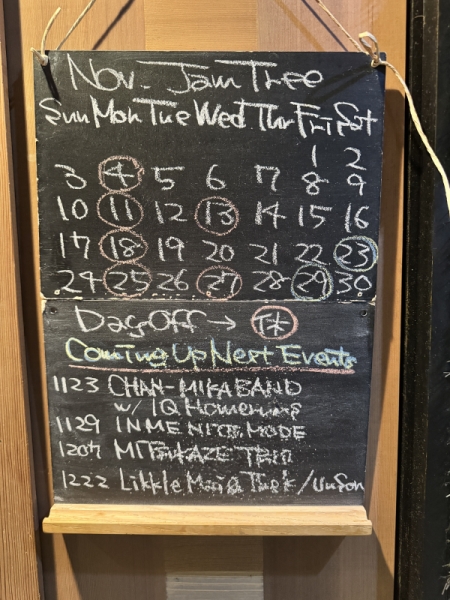 Nov. Jam Tree
Sun Mon Tue Wed. Thr Fri Sat
1 2
3 4 5 6 7 8 9
10 11 12 13 14 15 16
17 18 19 20 21 22 23
24 25 26 27 28 29 30
Day Off → 休
Coming Up Next Events
1123 CHAN-MIKA BAND
w/ IQ
1129 IN ME NITE MODE
1207 TRIO
1222 Likkle Mai & The K /